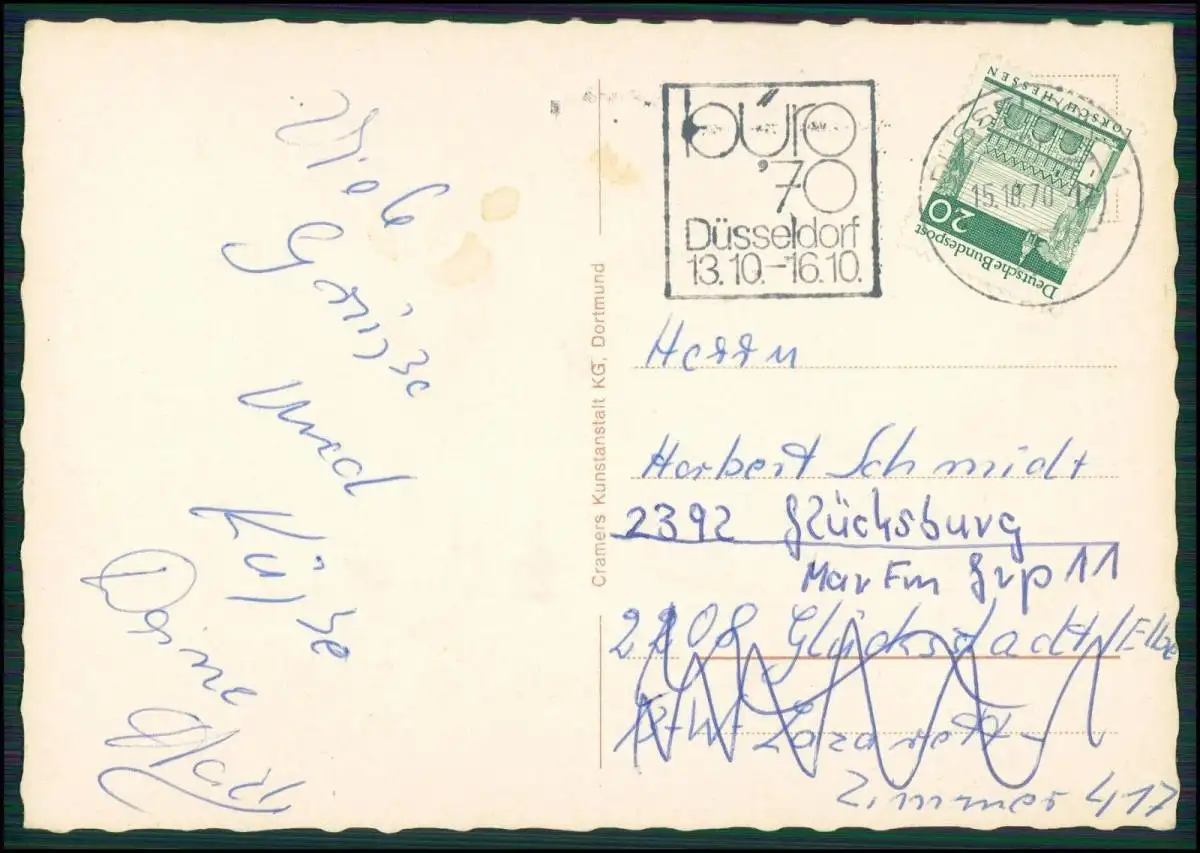 Viele
Grüsse
und
Küsse
Deine
Cramers Kunstanstalt KG, Dortmund
büro
'70
Düsseldorf
13.10.-16.10.
LORSCH/HESSEN
20
Deutsche Bundespost
15.10.70-17
Herrn
Herbert Schmidt
2392 Glücksburg
Mar Fm Grp 11
2208 Glückstadt/Elbe
Lazarett-
Zimmer 417